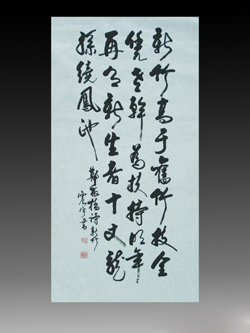 新竹高于舊竹枝全
凭老幹為扶持明年
再有新生者十丈龍
孫繞鳳池
鄭板橋詩新竹
書